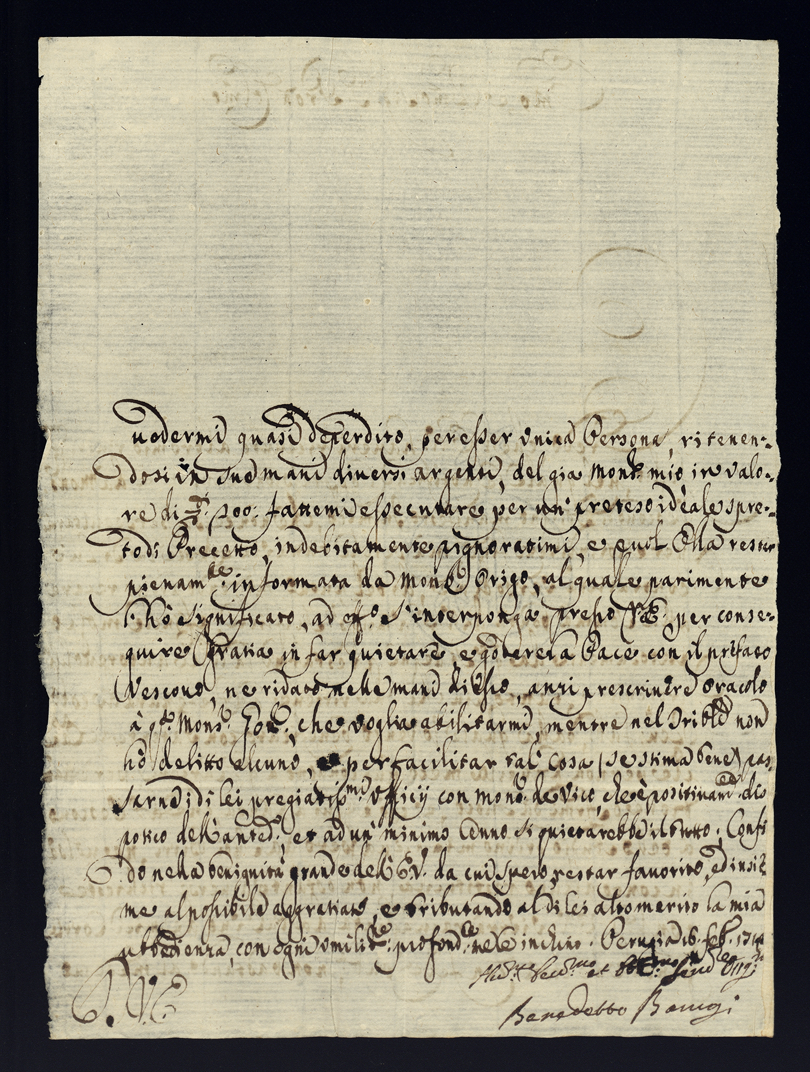 vedermi quasi deperdito, per esser unica Persona, ritenen-
dosi in sue mani diversi argenti, del già Mons.r mio in valo-
re di 900: fattemi essecutare per un preteso ideale spre-
to di Precetto, indebitamente pignoratimi, e puol Ella restar
pienam.te informata da Mons.r Origo, al quale parimente
l'hò significato, ad eff.o s'interponga presso V.E. per conse-
guire gratia in far quietare, e godere la Pace con il prefato
Vescovo, ne ridato nelle mani di esso, anzi prescrivere oracolo
à q.o Mons.r Gov.r, che voglia abilitarmi, mentre nel Trib.le non
hò delitto alcuno, e per facilitar tal cosa (se stima bene) pas-
sarne di lei pregiatis.mi Officij con Mons.r de Vico, che è positivam.te
potico dell'anted.o, et ad un minimo Cenno si quietarebbe il tutto; Confi-
do nella benignità grande dell'E.V. da cui spero, restar favorito, ed insie-
me al possibile aggratiato, e tributando al di lei alto merito la mia
ubbedienza, con ogni umiltà profond.te me le inchino. Perugia 16. Feb.
Benedetto